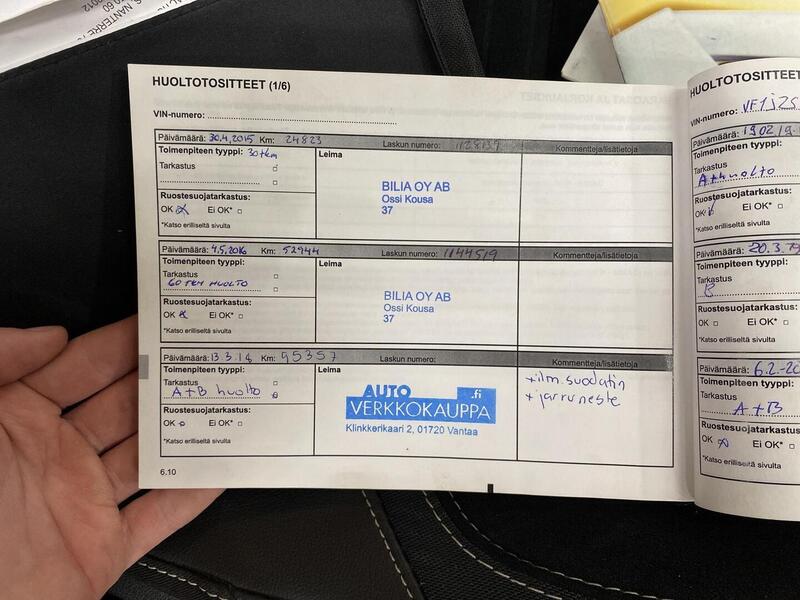 S, NANTERRE
2012
HUOLTOTOSITTEET (1/6)
VIN-numero:
Päivämäärä: 30.4.2015 Km: 24823 Laskun numero: 1128139 Kommentteja/lisätietoja
Toimenpiteen tyyppi: 30tkm Leima
Tarkastus
BILIA OY AB
Ossi Kousa
37
Ruostesuojatarkastus:
OK Ei OK*
*Katso erilliseltä sivulta
Päivämäärä: 4.5.2016 Km: 52944 Laskun numero: 1144519 Kommentteja/lisätietoja
Toimenpiteen tyyppi: Leima
Tarkastus
60 TKM HUOLTO
BILIA OY AB
Ossi Kousa
37
Ruostesuojatarkastus:
OK Ei OK*
*Katso erilliseltä sivulta
Päivämäärä: 13.3.18 Km: 95357 Laskun numero: Kommentteja/lisätietoja
Toimenpiteen tyyppi: Leima
Tarkastus
A+B huolto
+ilm.suodatin
+jarruneste
AUTO .fi
VERKKOKAUPPA
Klinkkerikaari 2, 01720 Vantaa
Ruostesuojatarkastus:
OK Ei OK*
*Katso erilliseltä sivulta
6.10
HUOLTOTOSITTEET
VIN-numero: VF1JZS
Päivämäärä: 19.02.19
Toimenpiteen tyyppi:
Tarkastus
A+huolto
Ruostesuojatarkastus:
OK Ei OK*
*Katso erilliseltä sivulta
Päivämäärä: 20.3.
Toimenpiteen tyyppi:
Tarkastus
B
Ruostesuojatarkastus:
OK Ei OK*
*Katso erilliseltä sivulta
Päivämäärä: 6.2.-20
Toimenpiteen tyyppi:
Tarkastus
A+B
Ruostesuojatarkastus:
OK Ei OK*
*Katso erilliseltä sivulta